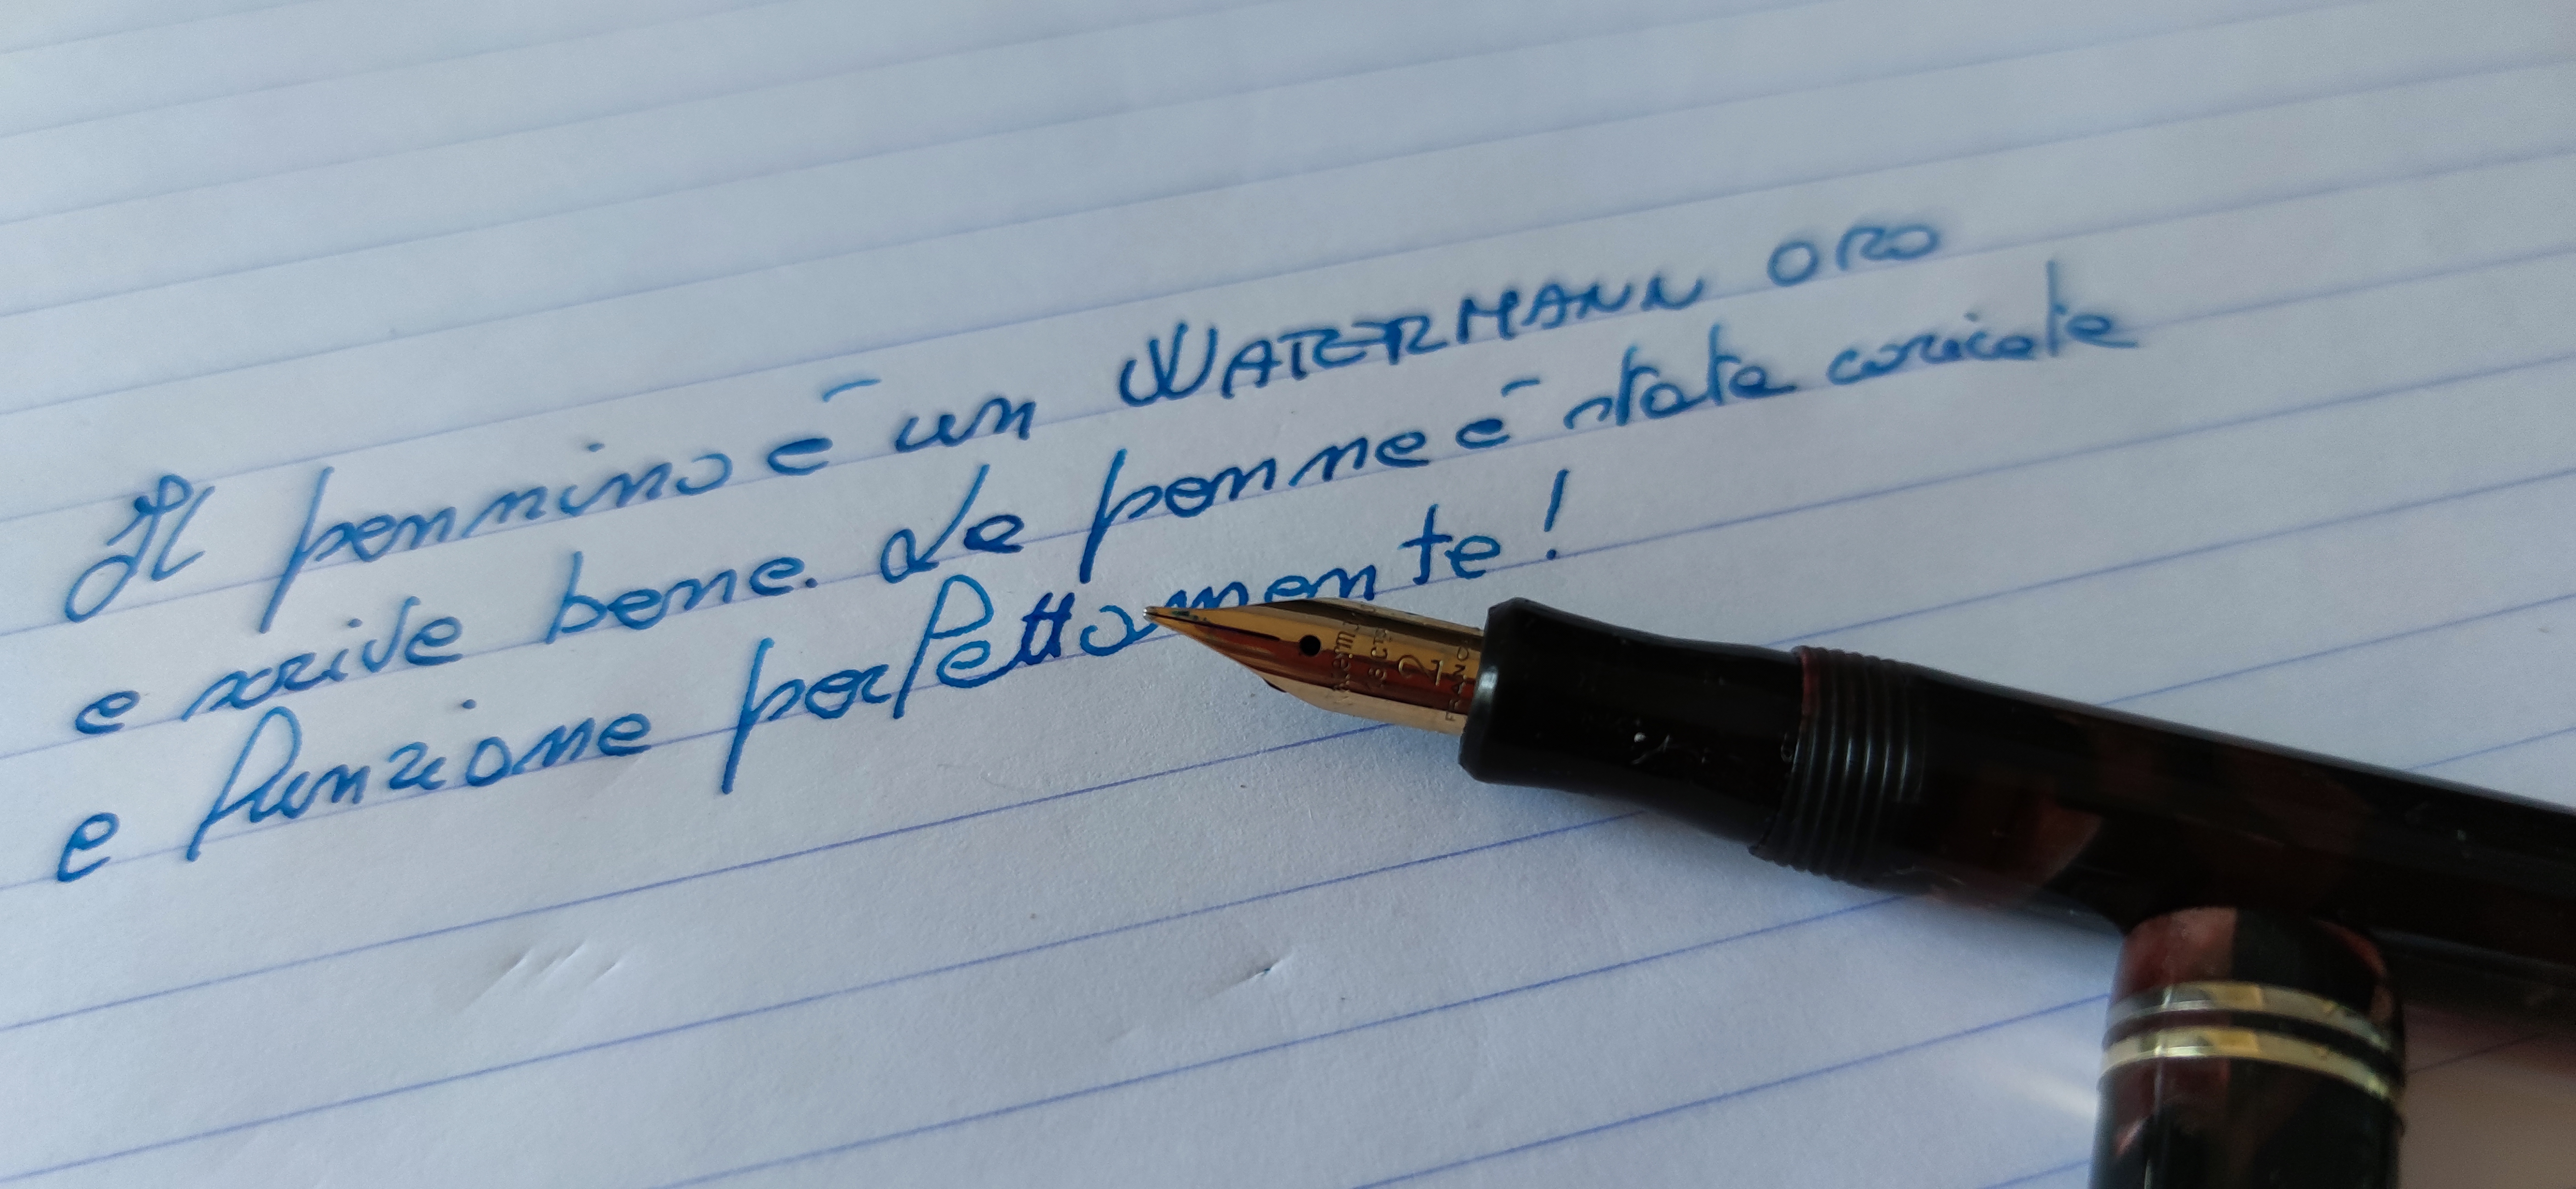 Il pennino è un WATERMANN ORO
e scrive bene. La penna è stata caricata
e funziona perfettamente!
18 CTS
2
FRANC